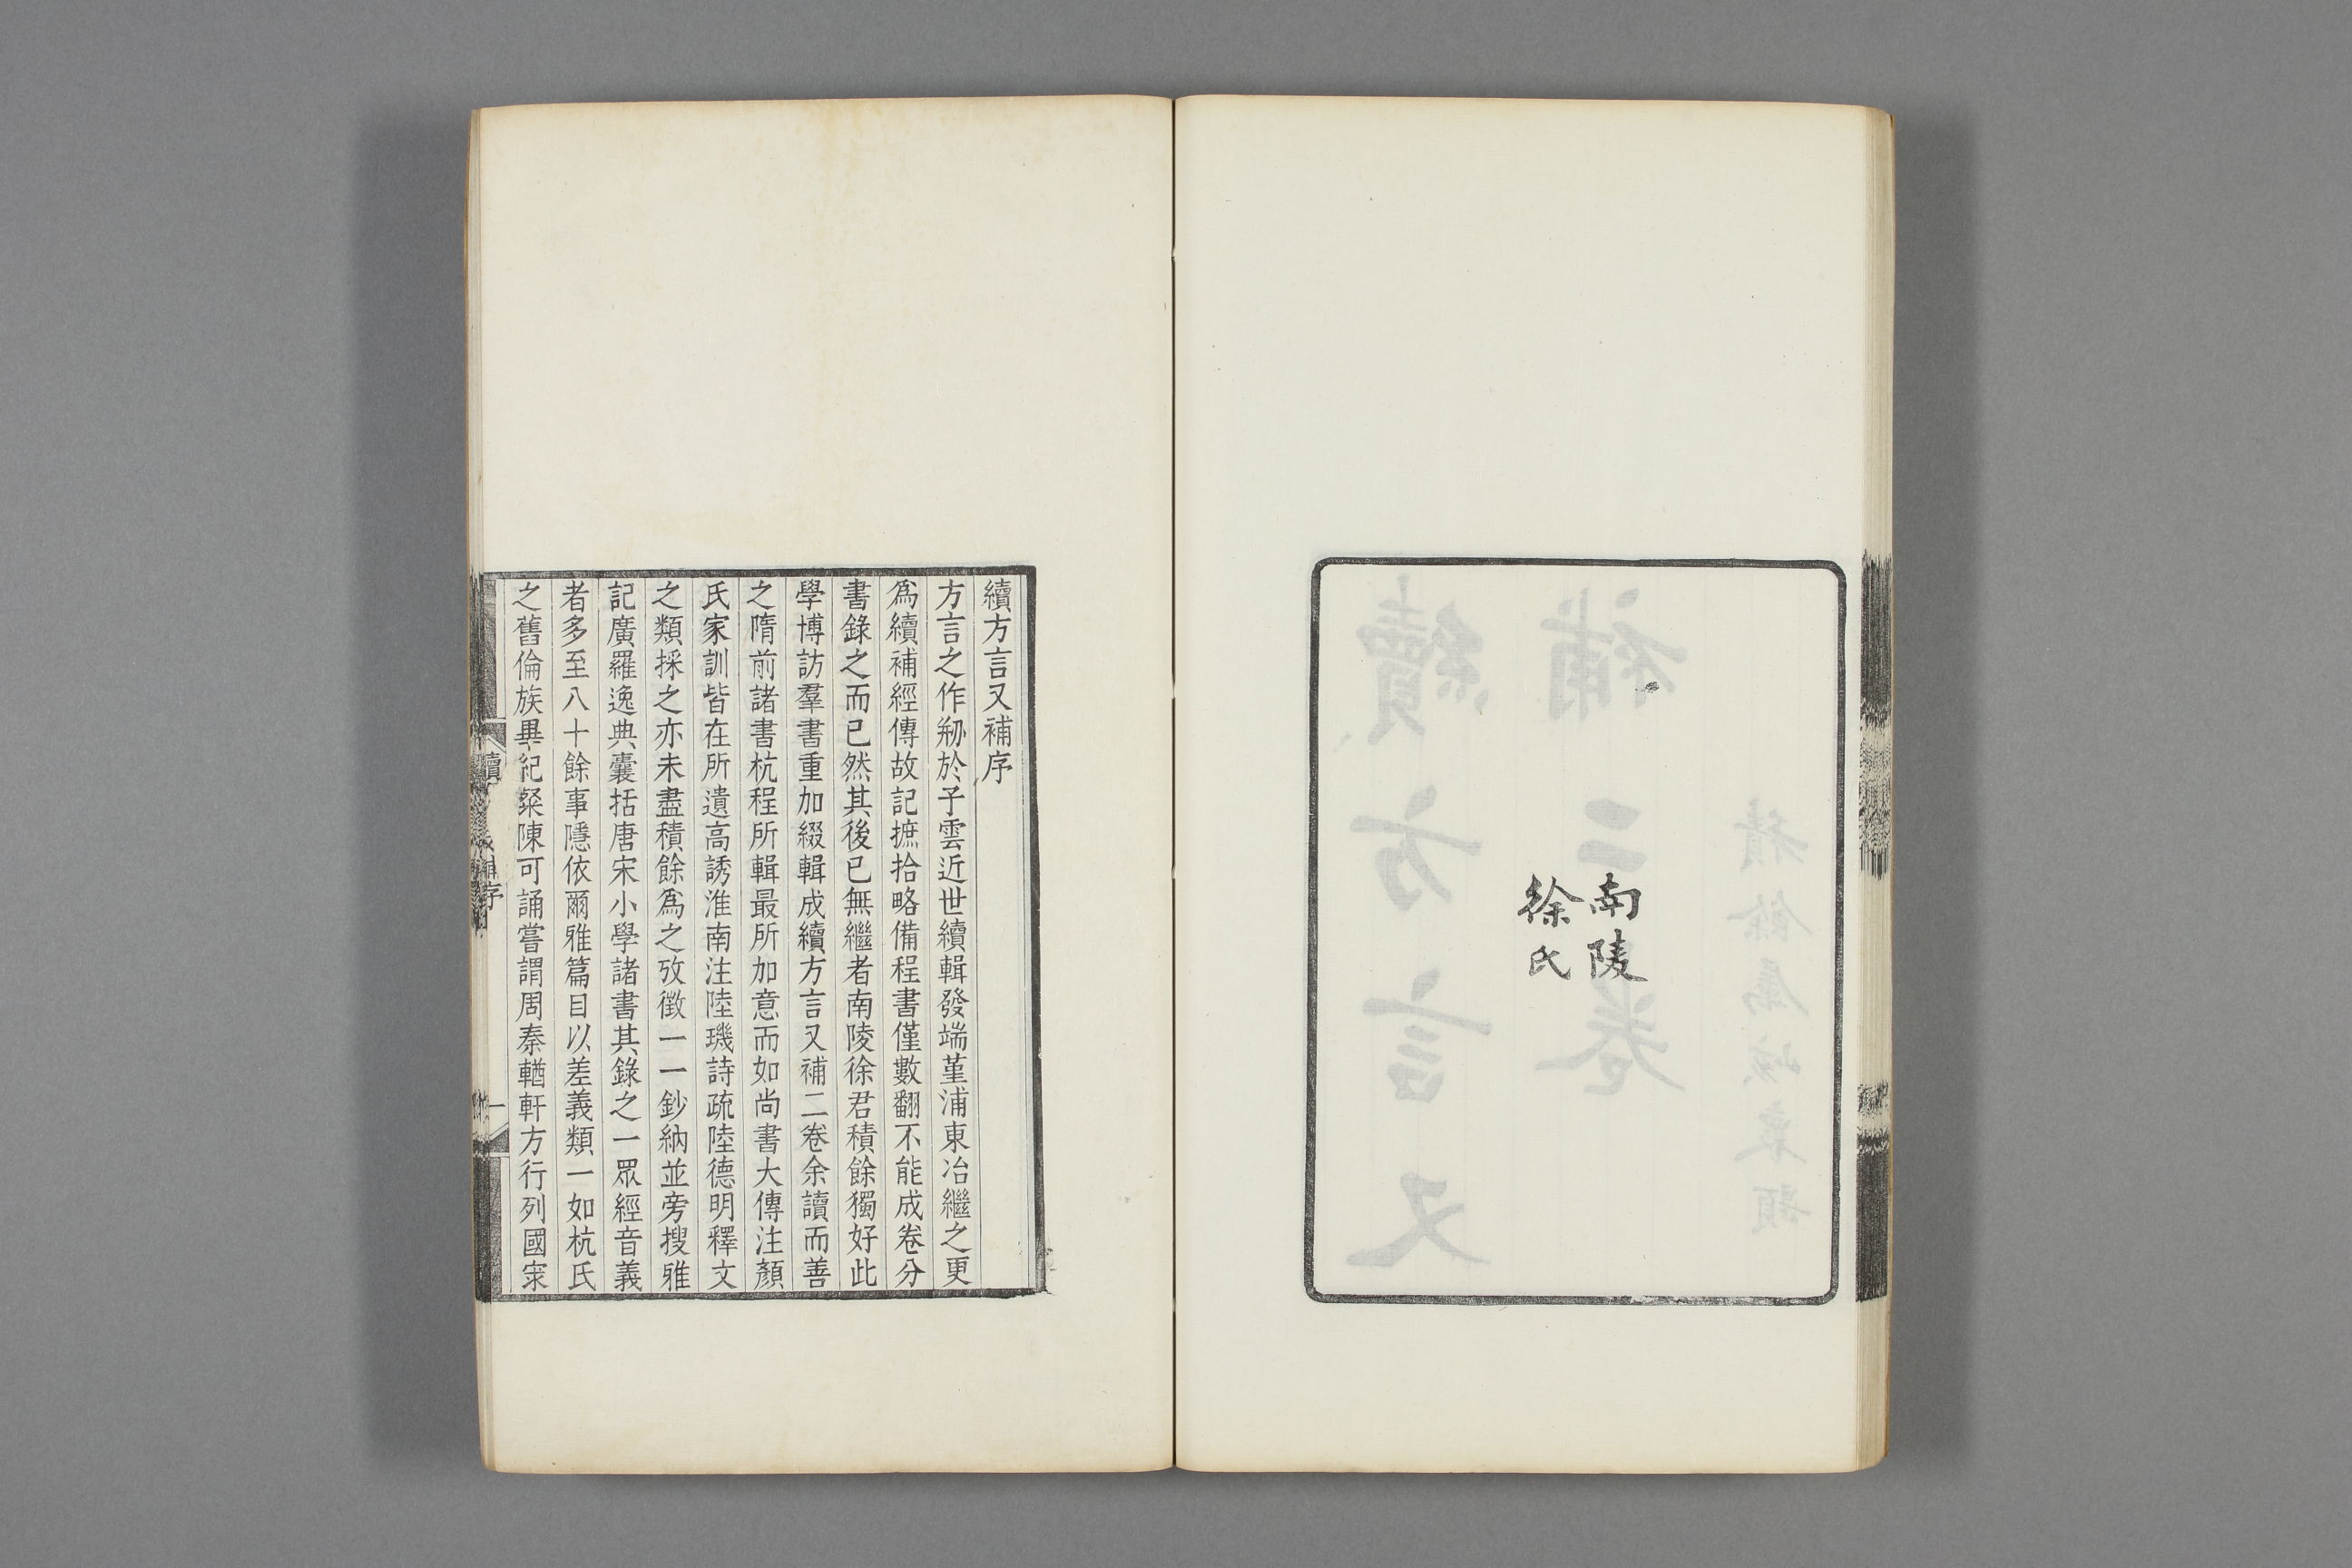 南陵
徐氏
續方言又補序
方言之作刱於子雲近世續輯發端堇浦東冶繼之更
爲續補經傳故記摭拾略備程書僅數翻不能成卷分
書錄之而已然其後已無繼者南陵徐君積餘獨好此
學博訪羣書重加綴輯成續方言又補二卷余讀而善
之隋前諸書杭程所輯最所加意而如尚書大傳注顏
氏家訓皆在所遺高誘淮南注陸璣詩疏陸德明釋文
之類採之亦未盡積餘爲之攷徵一一鈔納並旁搜雅
記廣羅逸典囊括唐宋小學諸書其錄之一眾經音義
者多至八十餘事隱依爾雅篇目以差義類一如杭氏
之舊倫族畢紀粲陳可誦嘗謂周秦輶軒方行列國寀